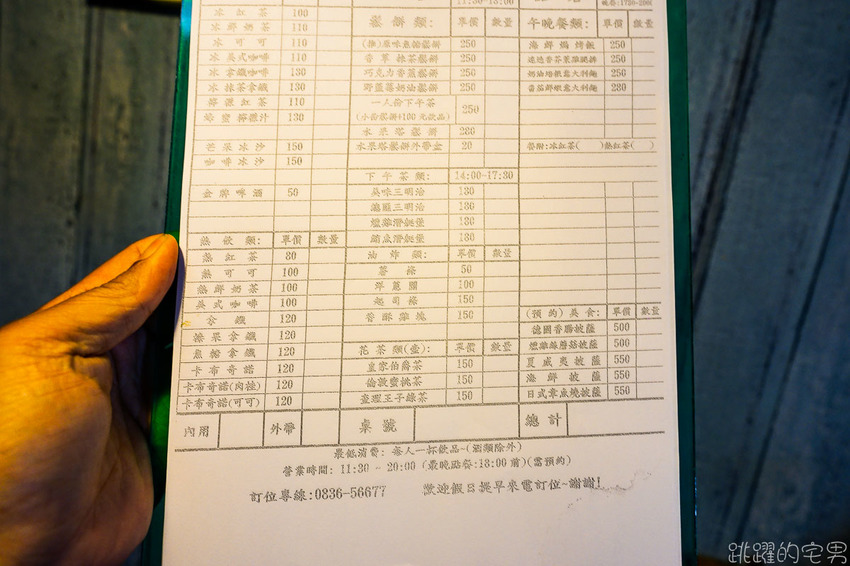 冰紅茶 100
冰鮮奶茶 110
冰可可 110
冰美式咖啡 110
冰拿鐵咖啡 130
冰抹茶拿鐵 130
檸檬紅茶 110
蜂蜜檸檬汁 130
芒果冰沙 150
咖啡冰沙 150
金牌啤酒 50
熱飲類: 單價 數量
熱紅茶 80
熱可可 100
熱鮮奶茶 100
美式咖啡 100
拿鐵 120
榛果拿鐵 120
焦糖拿鐵 120
卡布奇諾 120
卡布奇諾(肉桂) 120
卡布奇諾(可可) 120
鬆餅類: 單價 數量
(推)原味焦糖鬆餅 250
香草抹茶鬆餅 250
巧克力香蕉鬆餅 250
野藍莓奶油鬆餅 250
一人份下午茶
(小份鬆餅+100元飲品) 250
水果塔鬆餅 280
水果塔鬆餅外帶盒 20
下午茶類: 14:00-17:30
美味三明治 130
總匯三明治 130
燻雞潛艇堡 130
鮪魚潛艇堡 130
油炸類: 單價 數量
薯條 50
洋蔥圈 100
起司條 150
香酥雞塊 150
花茶類(壺): 單價 數量
皇家伯爵茶 150
倫敦蜜桃茶 150
查理王子綠茶 150
午晚餐類: 單價 數量
海鮮焗烤飯 250
250
奶油燻雞意大利麵 250
番茄鮮蝦意大利麵 280
餐附:冰紅茶( )熱紅茶( )
(預約)美食: 單價 數量
德國香腸披薩 500
燻雞蘑菇披薩 500
夏威夷披薩 550
海鮮披薩 550
日式章魚燒披薩 550
內用 外帶 桌號 總計
最低消費: 每人一杯飲品~(酒類除外)
營業時間: 11:30 - 20:00 (最晚點餐:18:00前)(當預約)
訂位專線:0836-56677 歡迎假日提早來電訂位~謝謝!
跳躍的宅男